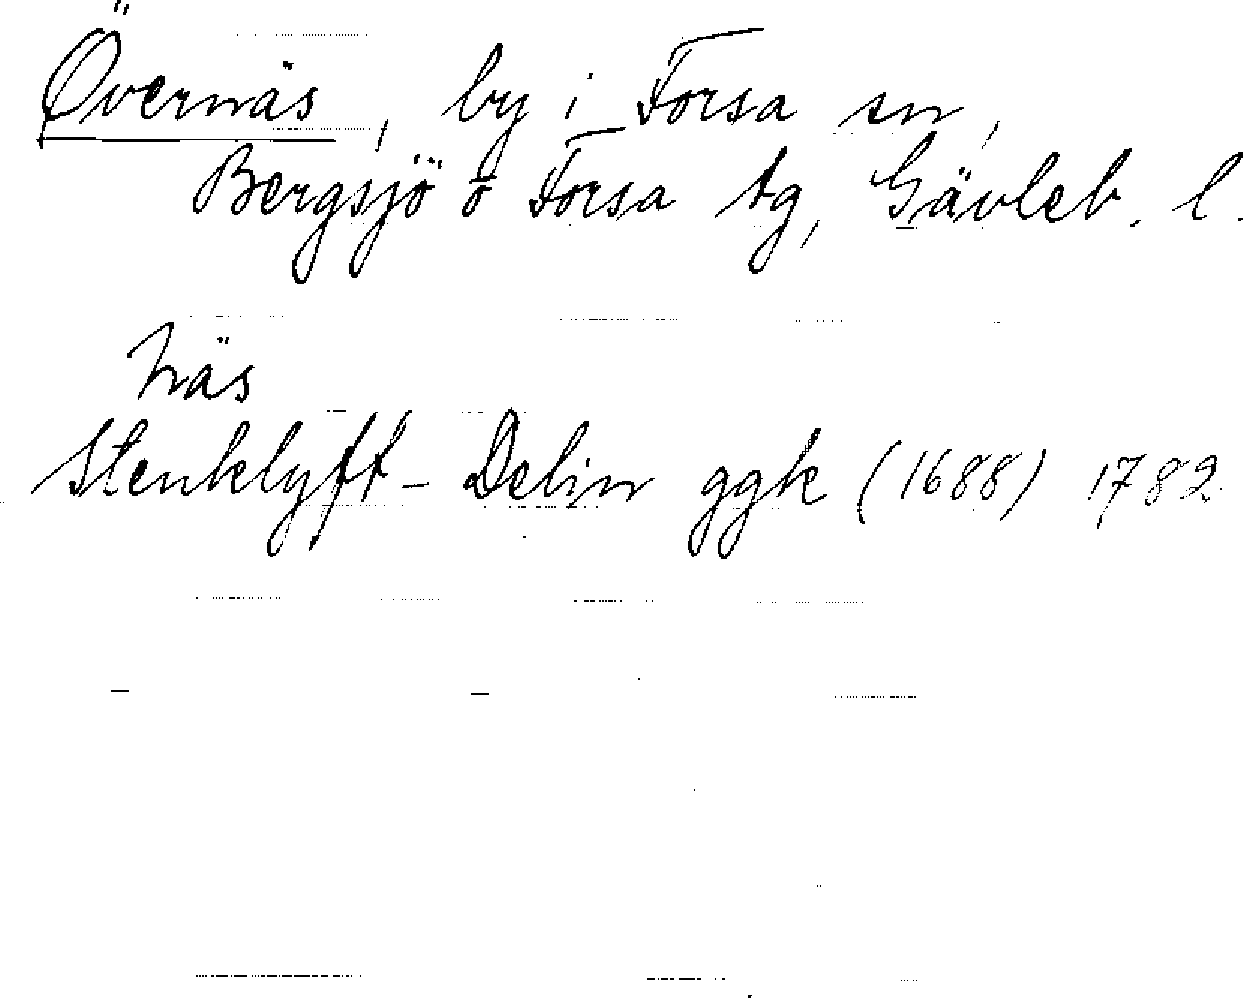 Övernäs, by i Forsa sn,
Bergsjö o Forsa tg, Gävleb. l.
Näs
Stenklyft - Delin ggk (1688) 1782